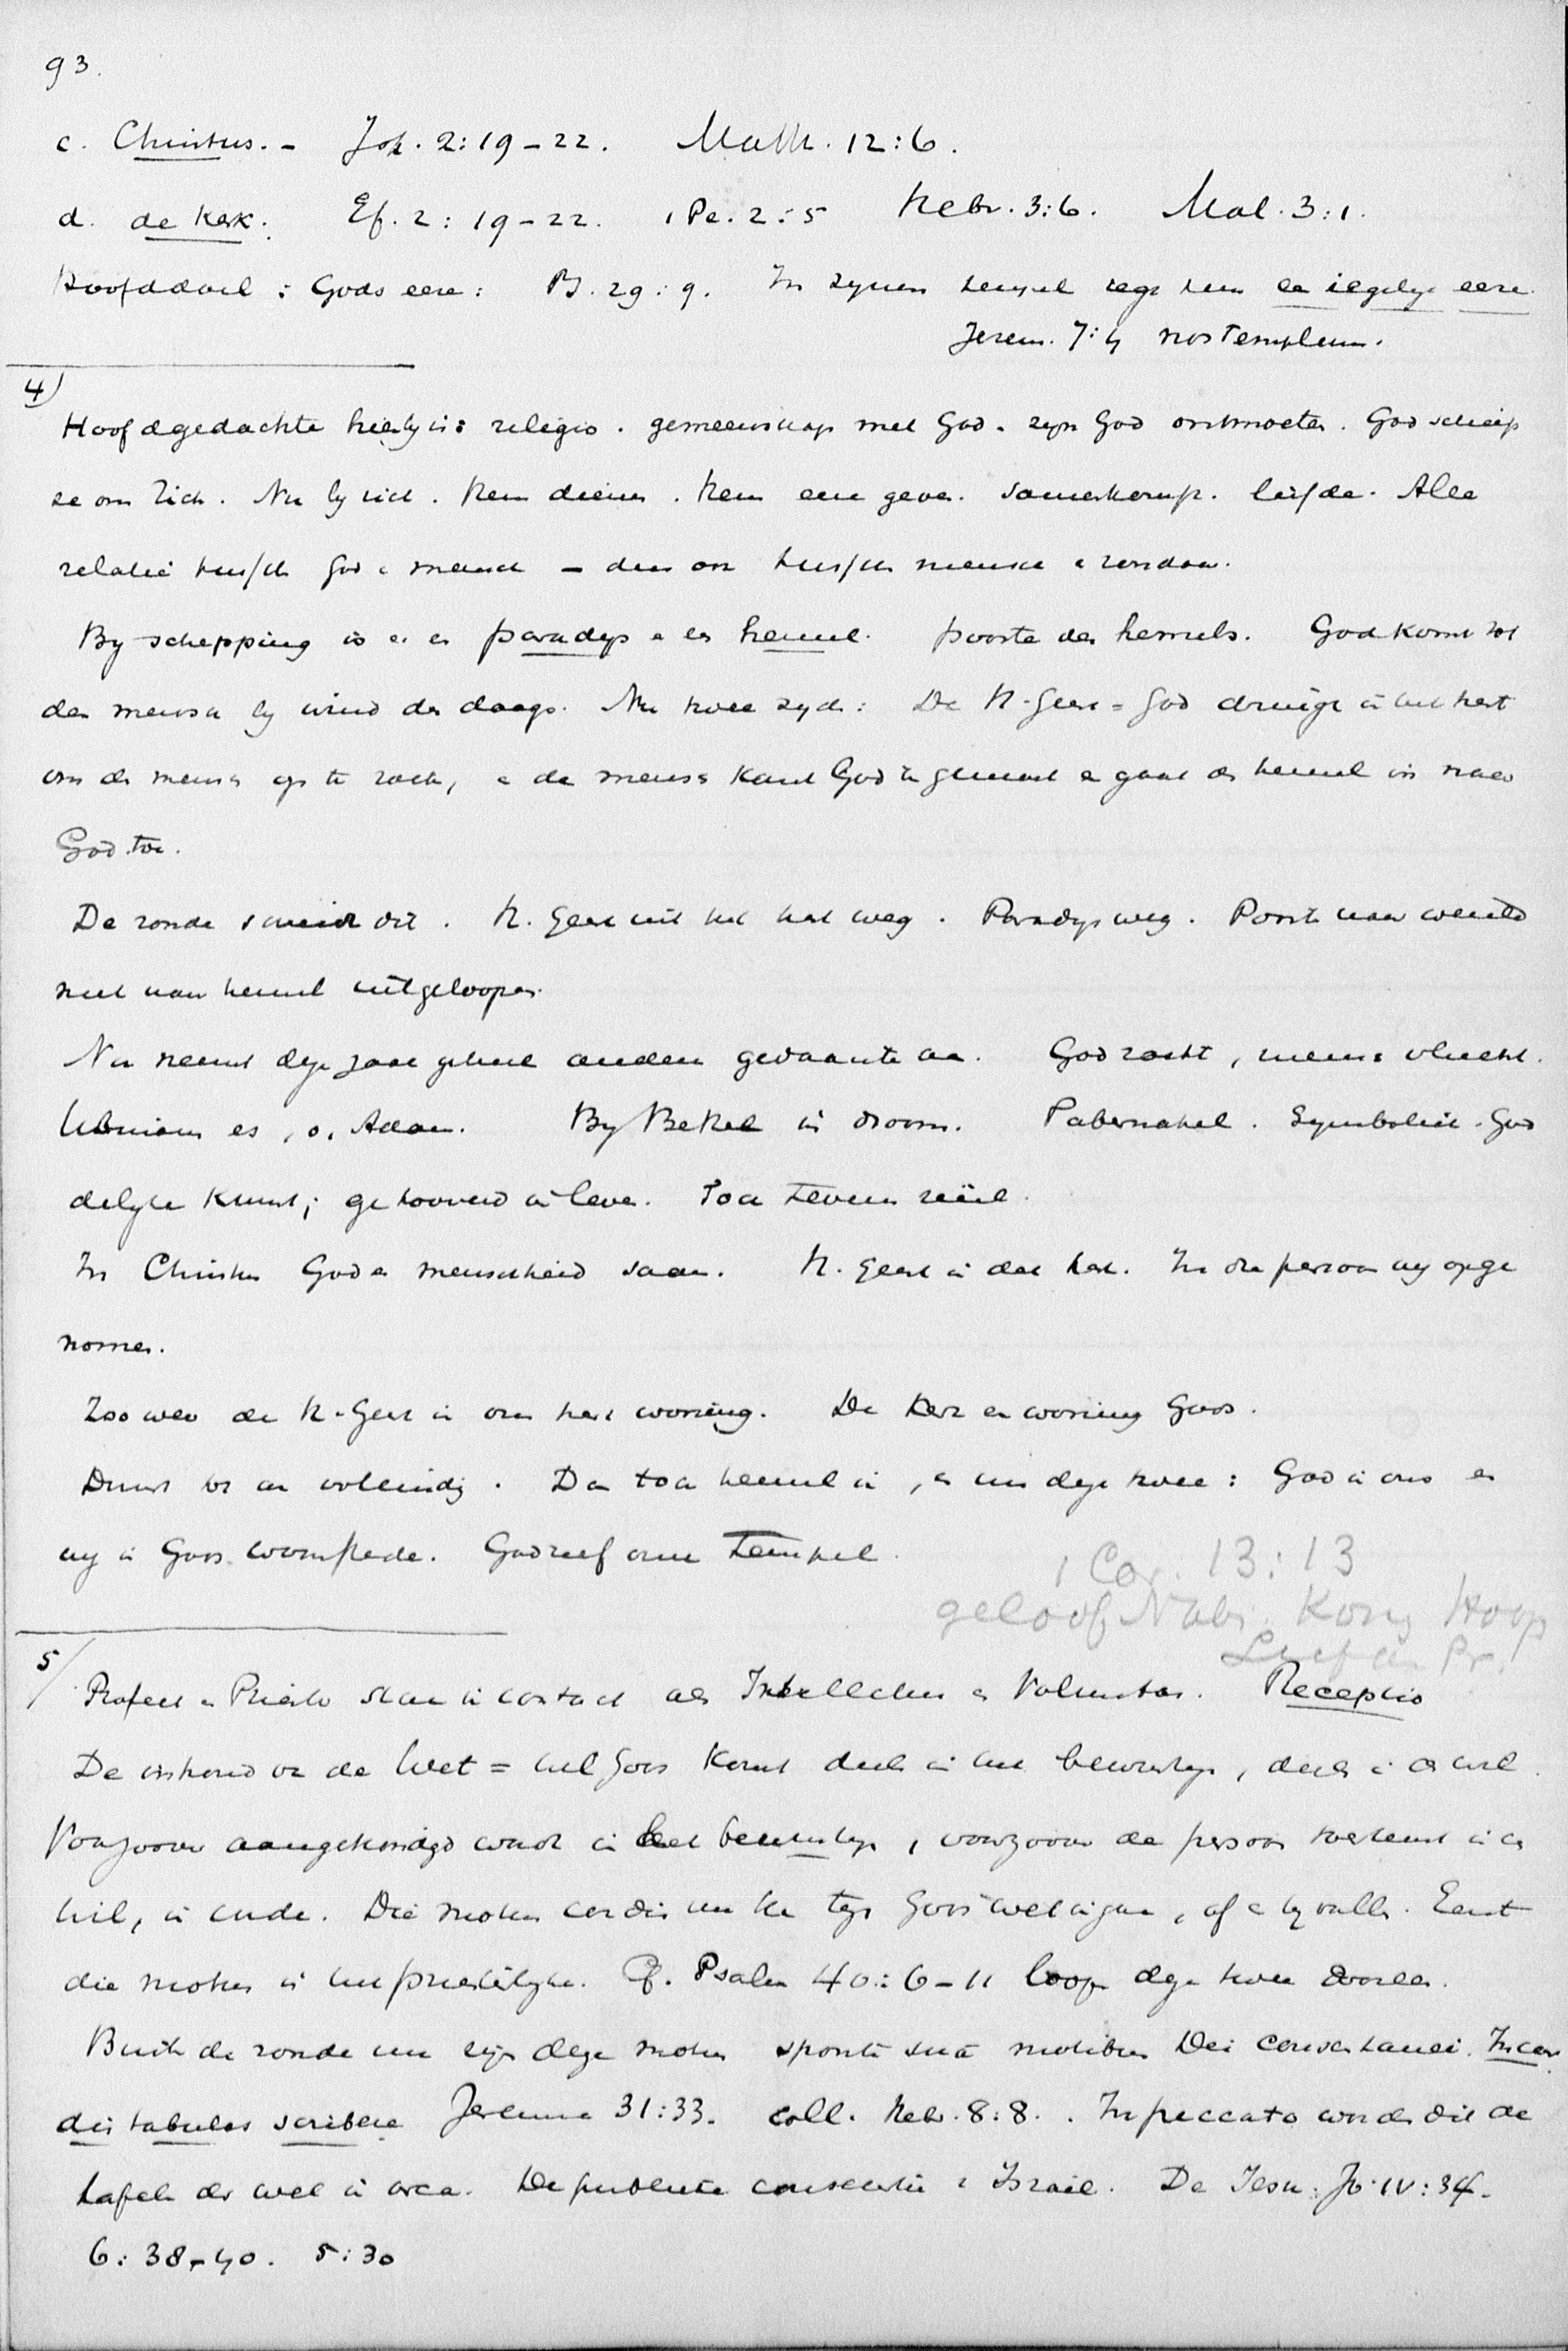 93.
c. Christus. - Joh. 2:19-22. Matth. 12:6.
d. de Kerk. Ef. 2: 19-22. 1 Pe. 2:5 Hebr. 3:6. Mal. 3:1.
Hoofddoel: Gods eere: Ps. 29:9. In zynen tempel zegt hem een iegelyk eere.
Jerem. 7:4 nos templum.
4)
Hoofdgedachte hierby is: religio. gemeenschap met God. zyn God ontmoeten. God schiep
ze om Zich. Nu by zich. Hem dienen. Hem eere geven. samenkomst. liefde. Alle
relatie tussch God e mensch - dus on tussch mensch e zondaar.
By schepping is er en paradys e en hemel. poorte des hemels. God komt tot
den mensch by wind des daags. Nu twee zyden: De H. Geest = God dringt in het hart
om de mensch op te zoeken, e de mensch gaat de hemel in naar
God toe.
De zonde dit. H. Geest uit het hart weg. Paradys weg. Poort naar wereld
niet naar hemel uitgeloopen.
Nu neemt deze zaak geheel andere gedaante aan. God zoekt, mensch vlucht.
Ubinam es, o, Adam. By Bethel in droom. Tabernakel. Symbolisch. God
delyke kunst; getooverd in leven. Toch tevens reëel.
In Christus God e menschheid saam. H. Geest in dat hart. In die persoon wy opge
nomen.
Zoo weer de H. Geest in ons hart woning. De Kerk en woning Gods.
Duurt tot aan voleinding. Dan toch hemel in, en nu deze twee: God in ons en
wy in Gods woonstede. God zelf onze Tempel.
1 Cor. 13:13
geloof Nabi. Kong Hoop
Liefde Pr.
5/
Profeet e Priester staan in contact als Intellectus e Voluntas. Receptio
De inhoud van de Wet = wil Gods komt deels in het bewustzyn, deels in de wil.
Voorzoover aangekondigd wordt in het bewustzyn, voorzoover de persoon toestemt in de
wil, in cude. Die motus cordis nu kan tegen Gods wet ingaan, of e byvallen. Eerst
die motus is het priesterlyke. Cf. Psalm 40:6-11 loopen deze twee dooreen.
Buiten de zonde nu zyn deze motus sponte sua motibus Dei consentanei. In cor
dis tabulas scribere Jeremia 31:33. coll. Hebr. 8:8. In peccato worden dit de
tafelen der wet in arca. De publieke conscientie e Israel. De Jesu. Jo. IV:34.
6:38-40. 5:30